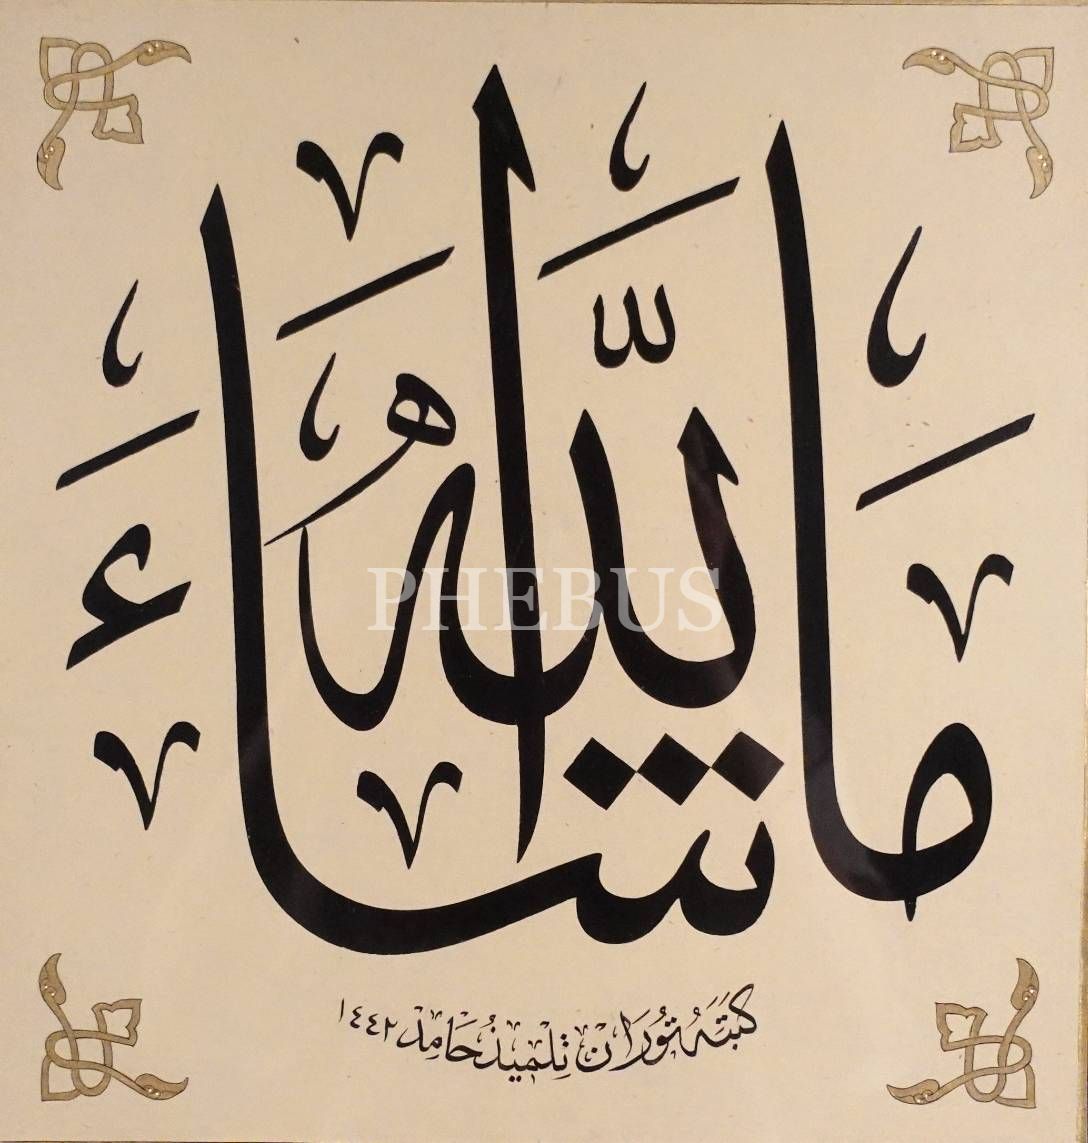 مَا شَاءَ اللّٰهُ
PHEBUS
كتبَهُ تُورَان تِلميذُ حَامِدْ ١٤٤٢